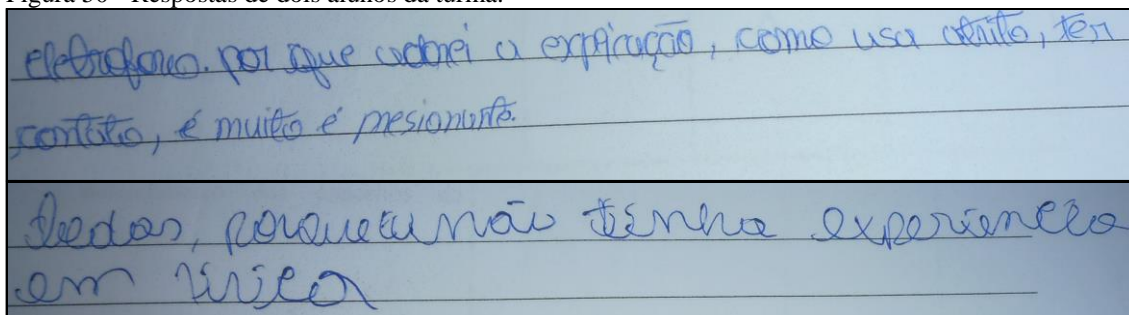 Figura 30 - Respostas de dois alunos da turma.
eletroforo. por que adorei a expricação, como usa atrito, ter
contato, é muito é presionante.
Dedas, porque eu não tinha experiencia
em física